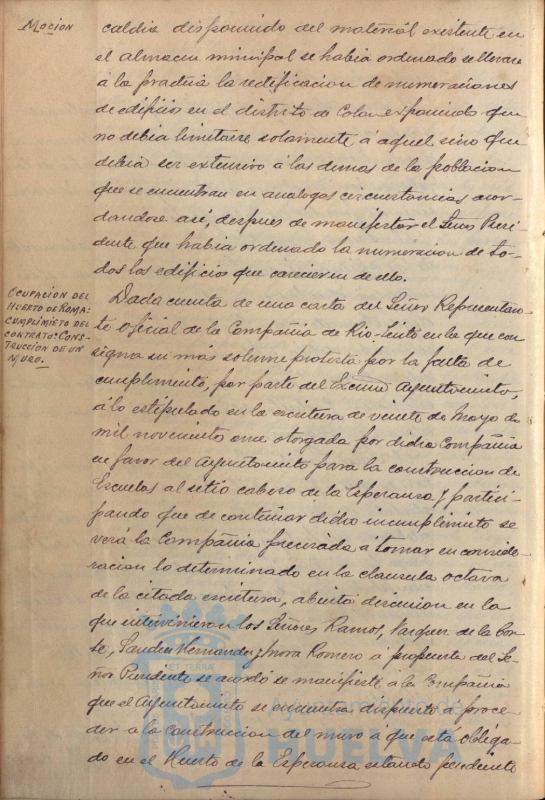 Mocion
caldia disponiendo del material existente en
el almacen municipal se habia ordenado se llevara
á la practica la rectificacion de numeraciones
de edificio en el distrito de Colon exponiendo que
no debia limitarse solamente á aquel sino que
debia ser extensivo á los demas de la poblacion
que se encuentran en analogas circunstancias acor-
dandose asi, despues de manifestar el Señor Presi-
dente que habia ordenado la numeracion de to-
dos los edificios que carecieren de ello.
Ocupacion del
Huerto de Roma:
Cumplimieto del
contrato: Cons-
truccion de un
muro.
Dada cuenta de una carta del Señor Representan-
te oficial de la Compañia de Rio-Tinto en la que con
signa su más solemne protesta por la falta de
cumplimiento, por parte del Excmo Ayuntamiento,
á lo estipulado en la escritura de veinte de Mayo de
mil novecientos once otorgada por dicha Compañia
en favor del Ayuntamiento para la construccion de
Escuelas al sitio cabezo de la Esperanza y partici-
pando que de continuar dicho incumplimiento se
verá la Compañia precisada á tomar en conside-
racion lo determinado en la clausula octava
de la citada escritura, abierta discusion en la
que intervinieron los Señores Ramos, Vazquez de la Cor-
te, Sanchez Hernandez y Mora Romero á propuesta del Se-
ñor Presidente se acordó se manifieste á la Compañia
que el Ayuntamiento se encuentra dispuesto á proce-
der á la construccion del muro a que está obliga-
do en el Huerto de la Esperanza estando pendiente
Ayuntamiento de
HUELVA